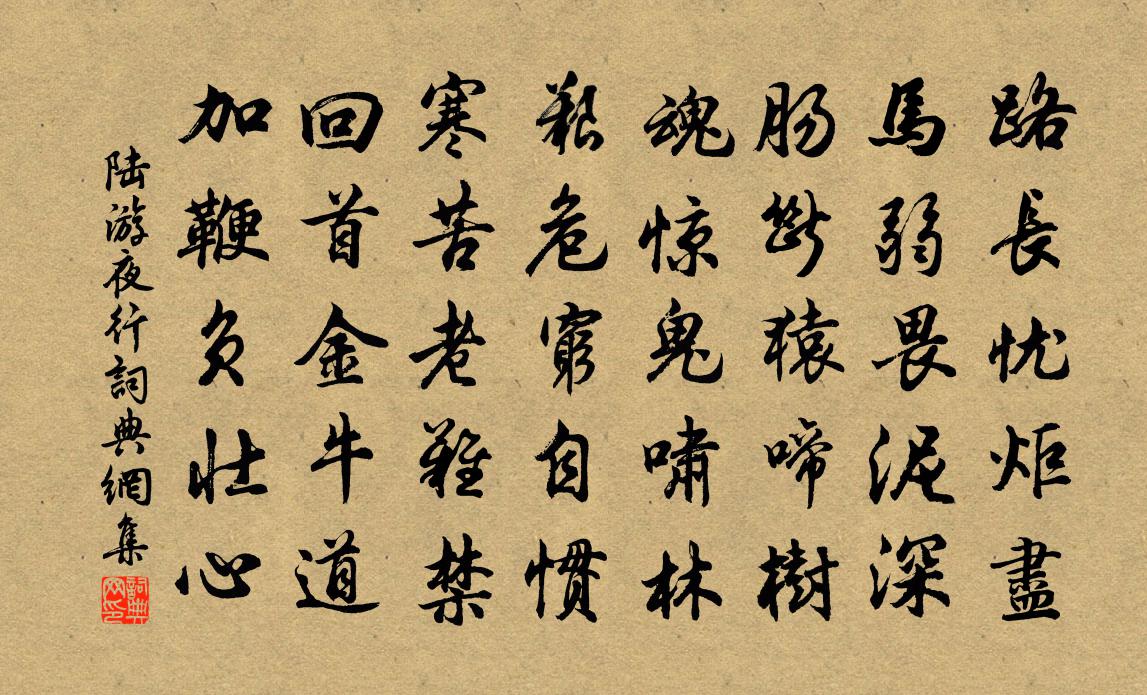 路長忧炬盡
馬弱畏泥深
肠斷猿啼樹
魂惊鬼嘯林
艱危窮自慣
寒苦老難禁
回首金牛道
加鞭負壮心
陆游夜行詞典網集
詞典網印